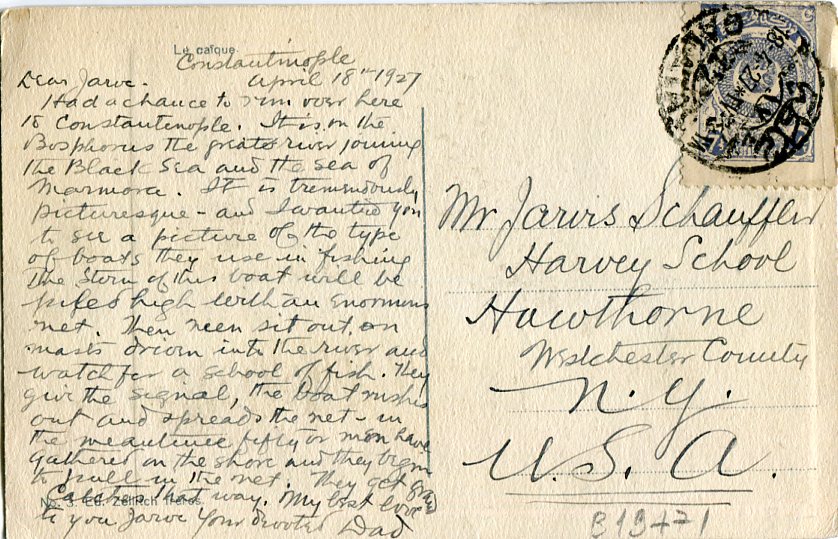 Le caïque.
Constantinople
April 18th 1927
Dear Jarve.
Had a chance to run over here
to Constantenople. It is on the
Bosphorus the great river joining
the Black Sea and the sea of
Marmora. It is tremendously
picturesque - and I wanted you
to see a picture of the type
of boats they use in fishing
The stern of this boat will be
piled high with an enormous
net. Then men sit out on
masts driven into the river and
watch for a school of fish. They
give the signal, the boat rushes
out and spreads the net - in
the meantime fifty or men have
gathered on the shore and they begin
to pull in the net. They get grand
catches that way. My best love
to you Jarve Your devoted Dad
No. 3. Ed. Zellitch frères.
Mr Jarvis Schauffler
Harvey School
Hawthorne
Westchester County
N. Y.
U. S. A.